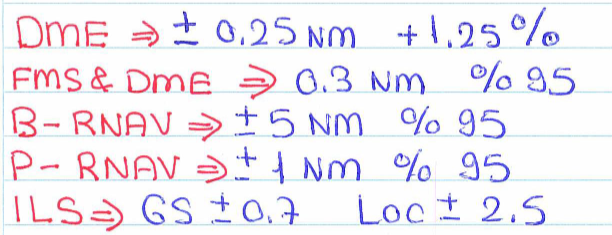 DME ⇒ ± 0.25 NM +1.25%
FMS & DME ⇒ 0.3 NM %95
B-RNAV ⇒ ±5 NM %95
P-RNAV ⇒ ±1 NM %95
ILS ⇒ GS ±0.7 Loc ± 2.5